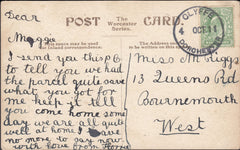 POST CARD
The Worcester Series.
4 OCT 11
Dear
Maggie
I send you this P.C
to tell you we had
the parcel quite safe
what you got for
me hope it will
you come home some
day we are all quite
well at home I have
no more to say now
with love from Home
Miss M Higgs
13 Queens Rd
Bournemouth
West